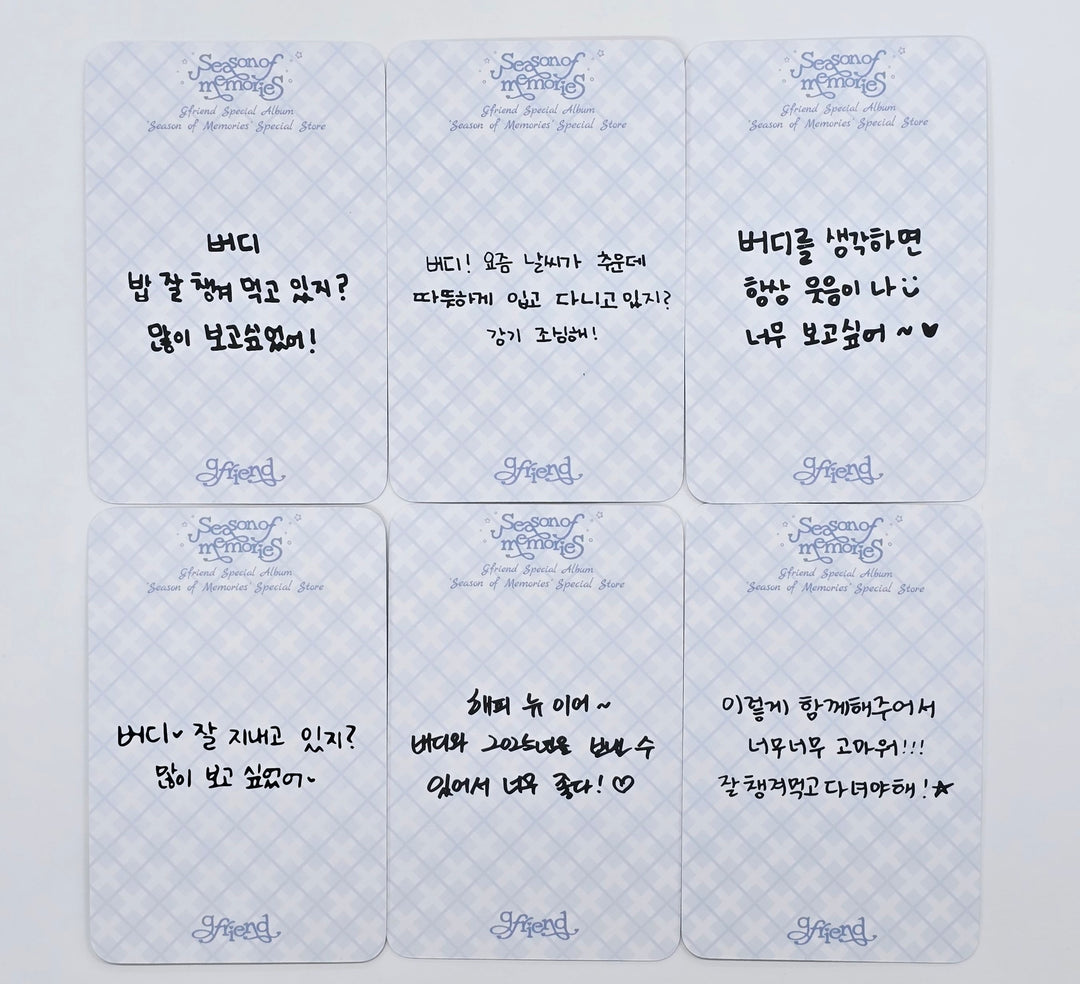 Season of
memories
Gfriend Special Album
'Season of Memories' Special Store
버디
밥 잘 챙겨 먹고 있지?
많이 보고싶었어!
gfriend
Season of
memories
Gfriend Special Album
'Season of Memories' Special Store
버디! 요즘 날씨가 추운데
따뜻하게 입고 다니고 있지?
감기 조심해!
gfriend
Season of
memories
Gfriend Special Album
'Season of Memories' Special Store
버디를 생각하면
항상 웃음이 나
너무 보고싶어 ~ ♥
gfriend
Season of
memories
Gfriend Special Album
'Season of Memories' Special Store
버디~ 잘 지내고 있지?
많이 보고 싶었어~
gfriend
Season of
memories
Gfriend Special Album
'Season of Memories' Special Store
해피 뉴 이어 ~
버디와 2025년을 보낼 수
있어서 너무 좋다! ♡
gfriend
Season of
memories
Gfriend Special Album
'Season of Memories' Special Store
이렇게 함께해주어서
너무너무 고마워!!!
잘 챙겨먹고 다녀야해! ★
gfriend